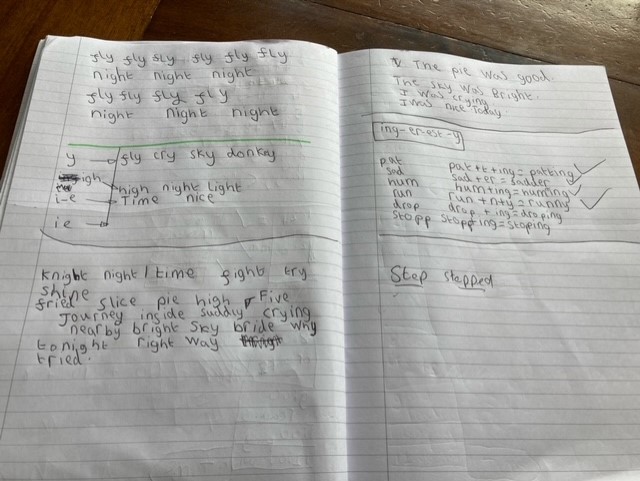 fly fly fly fly fly fly
night night night
fly fly fly fly
night night night
y fly cry sky donkey
igh high night light
i-e Time nice
ie
Knight night/time fight try
shine
fried slice pie high Five
Journey inside suddly crying
nearby bright sky bride why
tonight right way
tried.
The pie was good.
The sky was Bright.
I was crying
I was nice Today.
ing-er-est-y
pat pat+t+ing= patting
sad sad+er= sadder
hum hum+ing= huming
run run+n+y= runny
drop drop+ing=droping
stopp stopp+ing=stoping
Step stepped